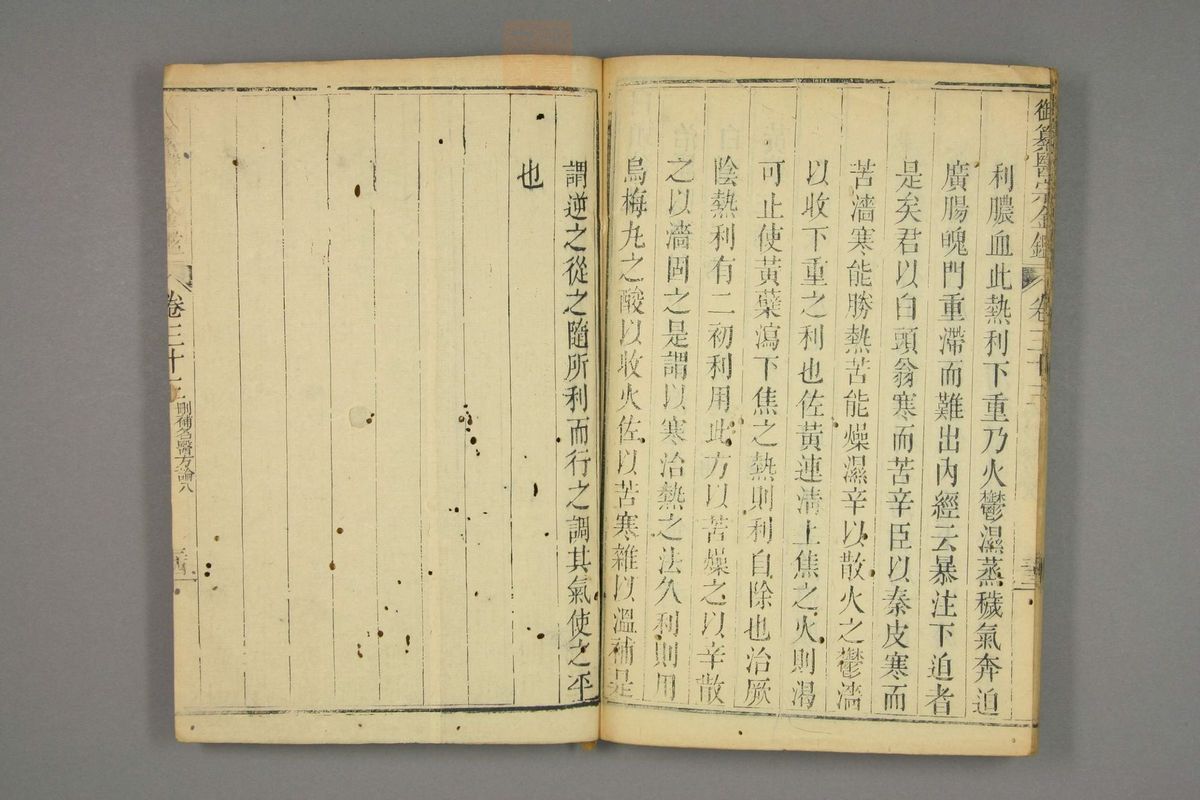 御纂醫宗金鑑
卷三十三
利膿血此熱利下重乃火鬱濕蒸穢氣奔迫
廣腸魄門重滯而難出內經云暴注下迫者
是矣君以白頭翁寒而苦辛臣以秦皮寒而
苦濇寒能勝熱苦能燥濕辛以散火之鬱濇
以收下重之利也佐黃連清上焦之火則渴
可止使黃蘗瀉下焦之熱則利自除也治厥
陰熱利有二初利用此方以苦燥之以辛散
之以濇固之是謂以寒治熱之法久利則用
烏梅丸之酸以收火佐以苦寒雜以溫補是
謂逆之從之隨所利而行之調其氣使之平
也
卷三十
刪補名醫方論八